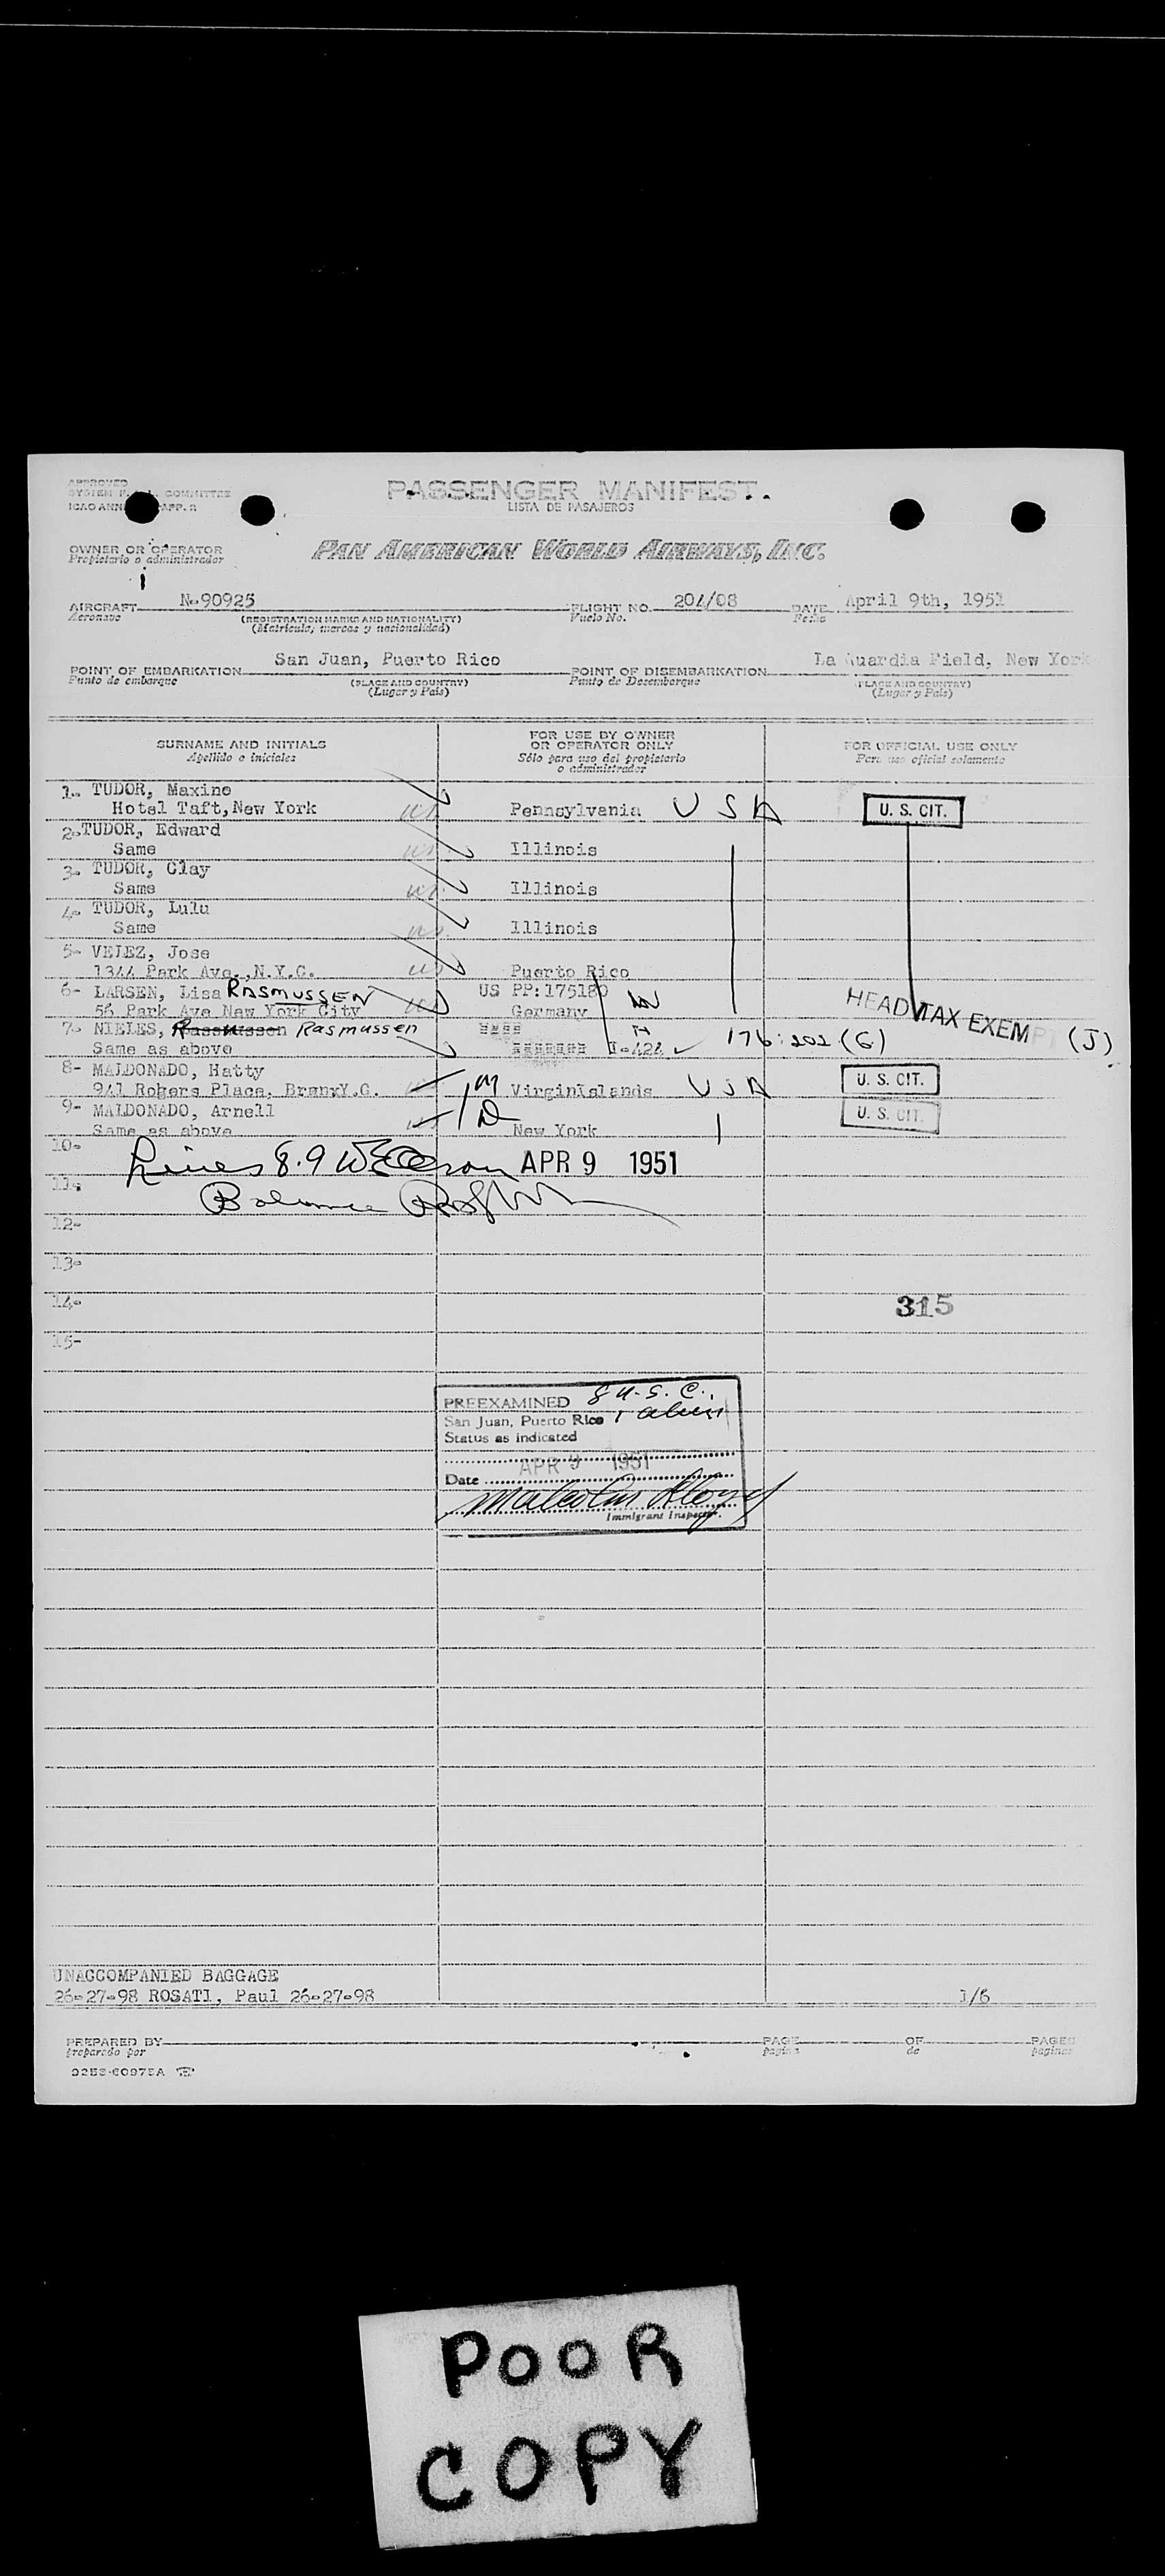 APPROVED
COMMITTEE
PASSENGER MANIFEST.
LISTA DE PASAJEROS
OWNER OR OPERATOR
Propietario o administrador
PAN AMERICAN WORLD AIRWAYS, INC.
AIRCRAFT N-90925 FLIGHT NO. 204/08 DATE April 9th, 1951
Aeronave (REGISTRATION MARKS AND NATIONALITY) Vuelo No. Fecha
(Matricula, marcas y nacionalidad)
POINT OF EMBARKATION San Juan, Puerto Rico POINT OF DISEMBARKATION La Guardia Field, New York
Punto de embarque (PLACE AND COUNTRY) Punto de Desembarque (PLACE AND COUNTRY)
(Lugar y Pais) (Lugar y Pais)
SURNAME AND INITIALS FOR USE BY OWNER OR OPERATOR ONLY FOR OFFICIAL USE ONLY
Apellido e iniciales Sólo para uso del propietario o administrador Para uso oficial solamente
1- TUDOR, Maxine
Hotel Taft, New York us Pennsylvania U S A U. S. CIT.
2- TUDOR, Edward
Same us Illinois
3- TUDOR, Clay
Same us Illinois
4- TUDOR, Lulu
Same us Illinois
5- VELEZ, Jose
1344 Park Ave., N.Y.C. us Puerto Rico
6- LARSEN, Lisa RASMUSSEN US PP:175180
56 Park Ave New York City us Germany HEAD TAX EXEMPT (J)
7- NIELES, Rasmussen Rasmussen
Same as above I-424 176:202 (G)
8- MALDONADO, Hatty
941 Rogers Place, BronxY.C. VirginIslands U S A U. S. CIT.
9- MALDONADO, Arnell
Same as above New York U. S. CIT.
10-
Lines 8.9 APR 9 1951
11-
Balance
12-
13-
14- 315
15-
PREEXAMINED 8 U.S.C.
San Juan, Puerto Rico 1 alien
Status as indicated
APR 9 1951
Date
Malcolm Lloyd
Immigrant Inspector.
UNACCOMPANIED BAGGAGE
26-27-98 ROSATI, Paul 26-27-98 1/6
PREPARED BY PAGE OF PAGES
preparado por pagina de paginas
POOR
COPY